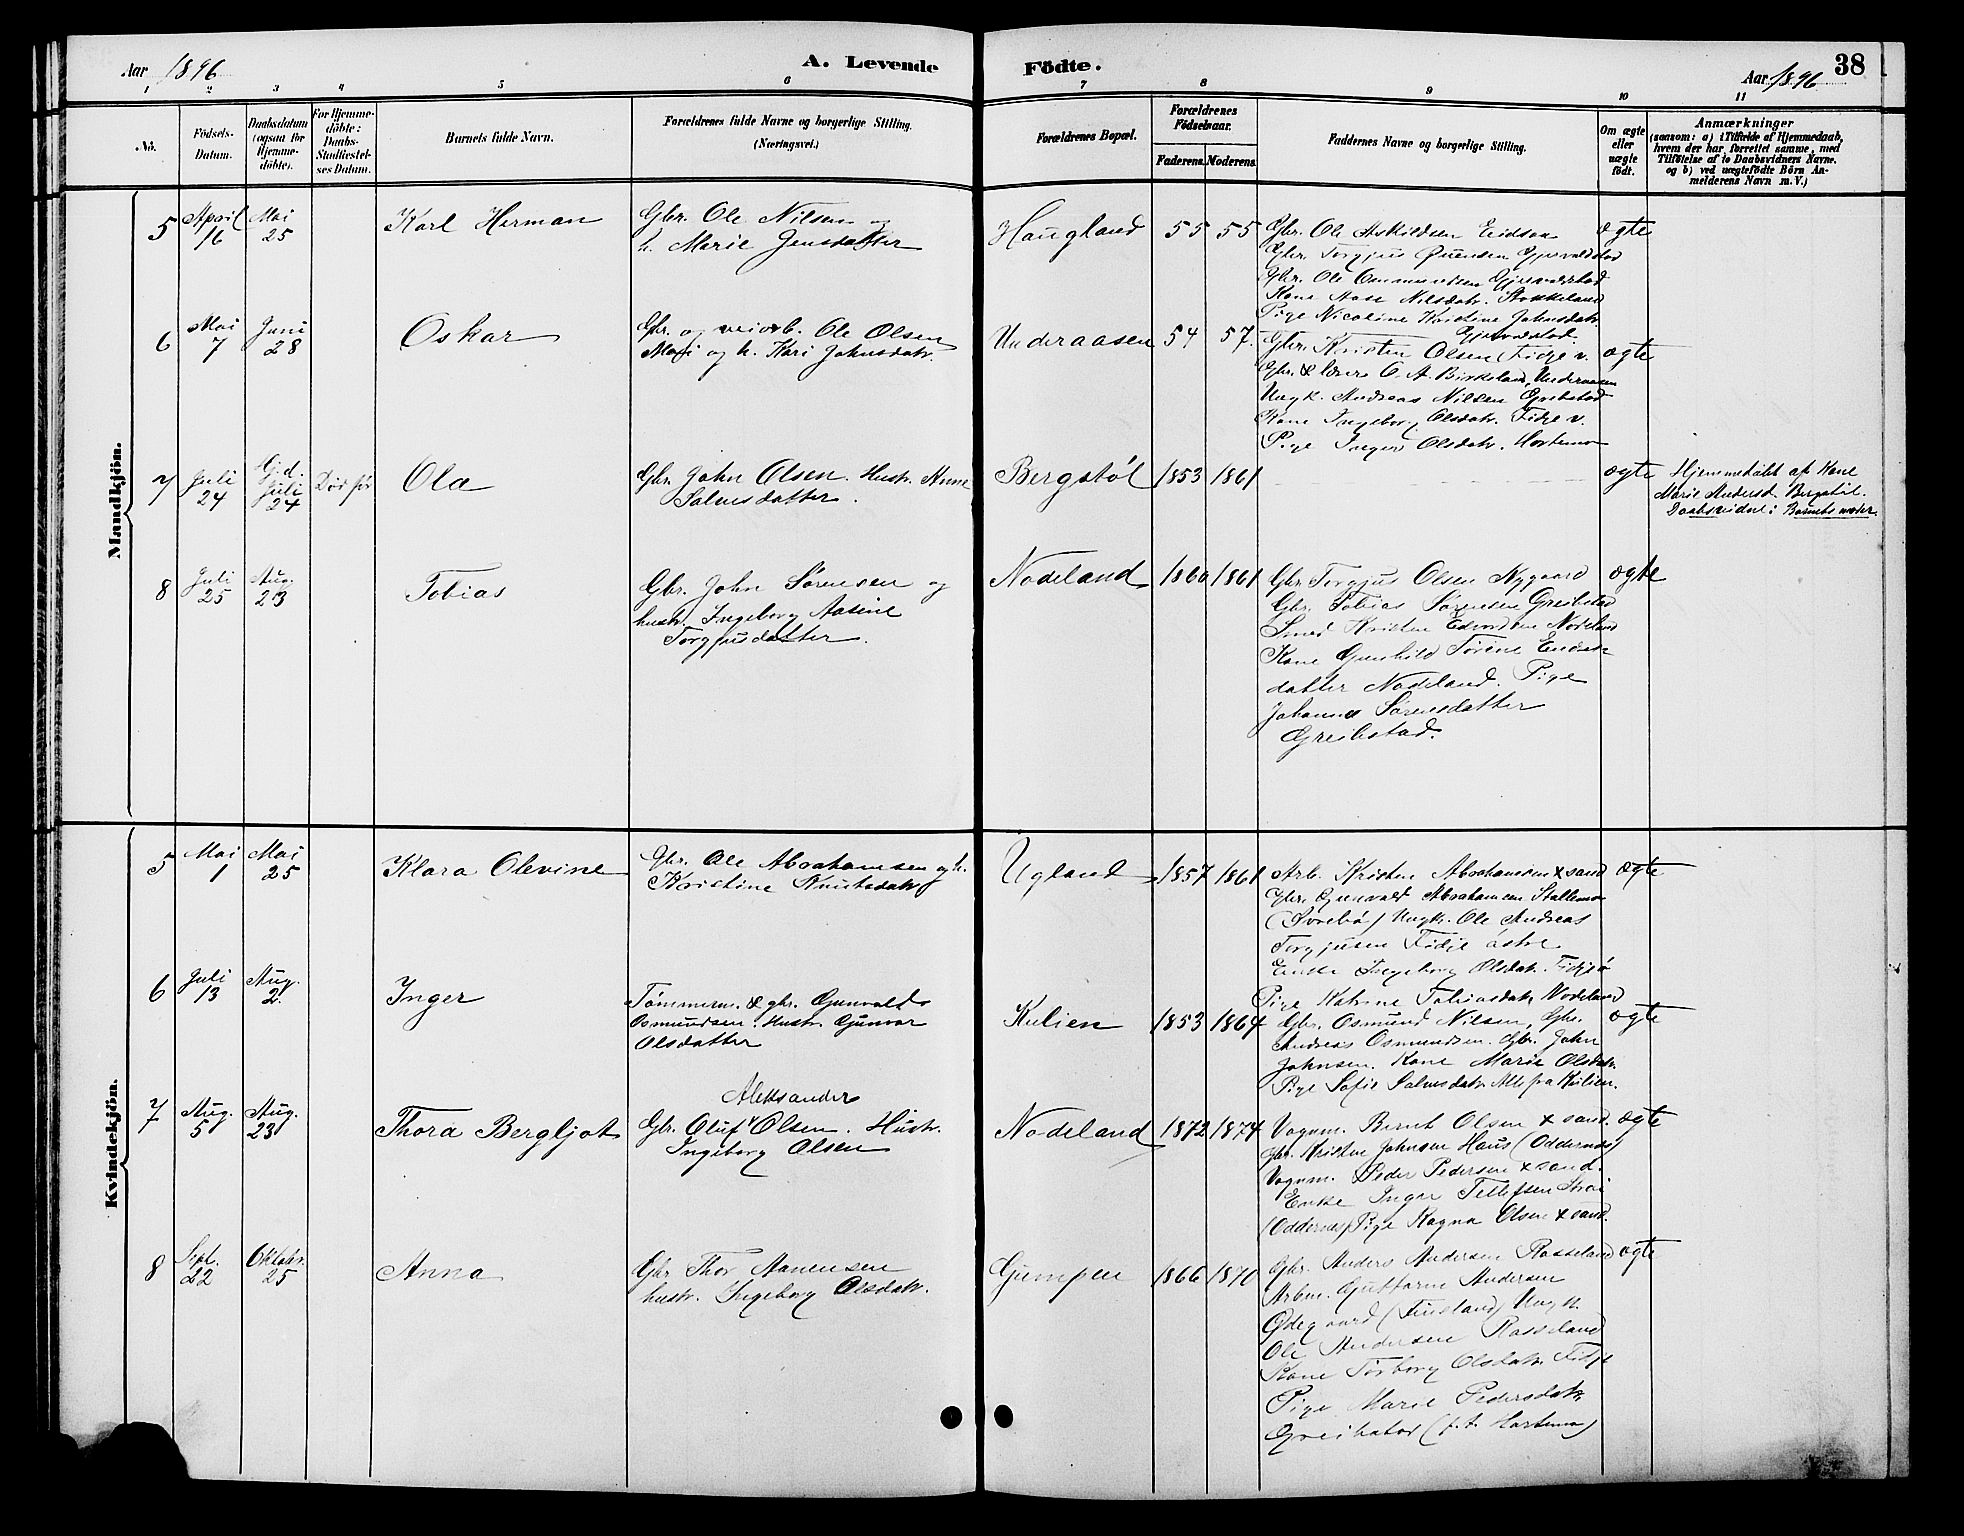 Aar 1896
A. Levende Fødte.
Aar 1896
38
1 2 3 4 5 6 7 8 9 10 11
No.
Fødsels-
Datum.
Daabsdatum
(ogsaa for
Hjemme-
døbte).
For Hjemme-
døbte:
Daabs-
Stadfæstel-
ses Datum.
Barnets fulde Navn.
Forældrenes fulde Navne og borgerlige Stilling.
(Næringsvei.)
Forældrenes Bopæl.
Forældrenes
Fødselsaar.
Faderens. Moderens.
Faddernes Navne og borgerlige Stilling.
Om ægte
eller
uægte
født.
Anmærkninger
(saasom: a) i Tilfælde af Hjemmedaab,
hvem der har forrettet samme, med
Tilføielse af to Daabsvidners Navne.
og b) ved uægtefødte Børn An-
melderens Navn m. V.)
Mandkjön.
5
April
16
Mai
25
Karl Herman
Gbr. Ole Nilsen og
h. Marie Jensdatter
Haugland
55 55
Gbr. Ole Askildsen
Gbr. Torgjus
Gbr. Ole Ommundsen
Kone Aase Nilsdatr. Stokkeland
Pige Nicoline Kristine Johnsdatr.
ægte
6
Mai
7
Juni
28
Oskar
Gbr. og veiarb. Ole Olsen
og h. Kari Johnsdatr.
Underaasen
54 57.
Gbr. Kristen Olsen Fidje v.
Gbr. & lærer O. A. Birkeland, Underaasen
Ungk. Andreas Nilsen Greibstad
Kone Ingeborg Olsdatr. Fidje v.
Pige Inger Olsdatr. Hortemo
ægte
7
Juli
24
Hj.d.
Juli
24
Død før
Ola
Gbr. John Olsen. Hustr. Anne
Salvesdatter.
Bergstøl
1853 1861
ægte
Hjemmedøbt af Kone
Marie Andersd. Bergstøl.
Daabsvidne: Barnets moder.
8
Juli
25
Aug.
23
Tobias
Gbr. John Sørensen og
hustr. Ingeborg Aasine
Torgjusdatter.
Nodeland
1860 1861
Gbr. Torgjus Olsen Nygaard
Gbr. Tobias Sørensen Greibstad
Smed Kristen Edvardsen Nodeland
Kone Gunhild Tørine
datter Nodeland. Pige
Johanne Sørensdatter
Greibstad.
ægte
Kvindekjön.
5
Mai
1
Mai
25
Klara Olevine
Gbr. Ole Abrahamsen og h.
Kristine Knutsdatr
Ugland
1857 1861
Arb. Kristen Abrahamsen Xsand
Gbr. Gunvald Abrahamsen Stallemo
Ungk. Ole Andreas
Torgjusen Fidje østre
Enke Ingeborg Olsdatr. Fidje ø
Pige Katrine Tobiasdatr Nodeland
ægte
6
Juli
13
Aug.
2
Inger
Tømmerm. & gbr. Gunvald
Osmundsen. Hustr. Gunvor
Olsdatter
Kulien
1853 1864
Gbr. Osmund Nilsen, Gbr.
Andreas Osmundsen. Gbr. John
Johnsen. Kone Marie Olsdatr.
Pige Sofie Salvesdatr Alle fra Kulien.
ægte
7
Aug.
5
Aug.
23
Thora Bergljot
Aleksander
Gbr. Oluf Olsen. Hustr.
Ingeborg Olsen
Nodeland
1872 1874
Vognm. Bernt Olsen Xsand.
Gbr. Kristen Johnsen Haus (Oddernes)
Vognm. Peder Pedersen Xsand.
Enke Inger Tellefsen Strai
(Oddernes) Pige Ragna Olsen Xsand.
ægte
8
Sept.
22
Oktobr.
25
Anna
Gbr. Thor Aanensen
hustr. Ingeborg Olsdatr.
Gumpen
1866 1870
Gbr. Anders Andersen Rosseland
Arbm. Guttorm Andersen
Ødegaard (Finsland) Ungk.
Ole Andersen Rosseland
Kone Torborg Olsdatr. Fidje
Pige Marie Pedersdatr
Greibstad (p.t. Hortemo)
ægte